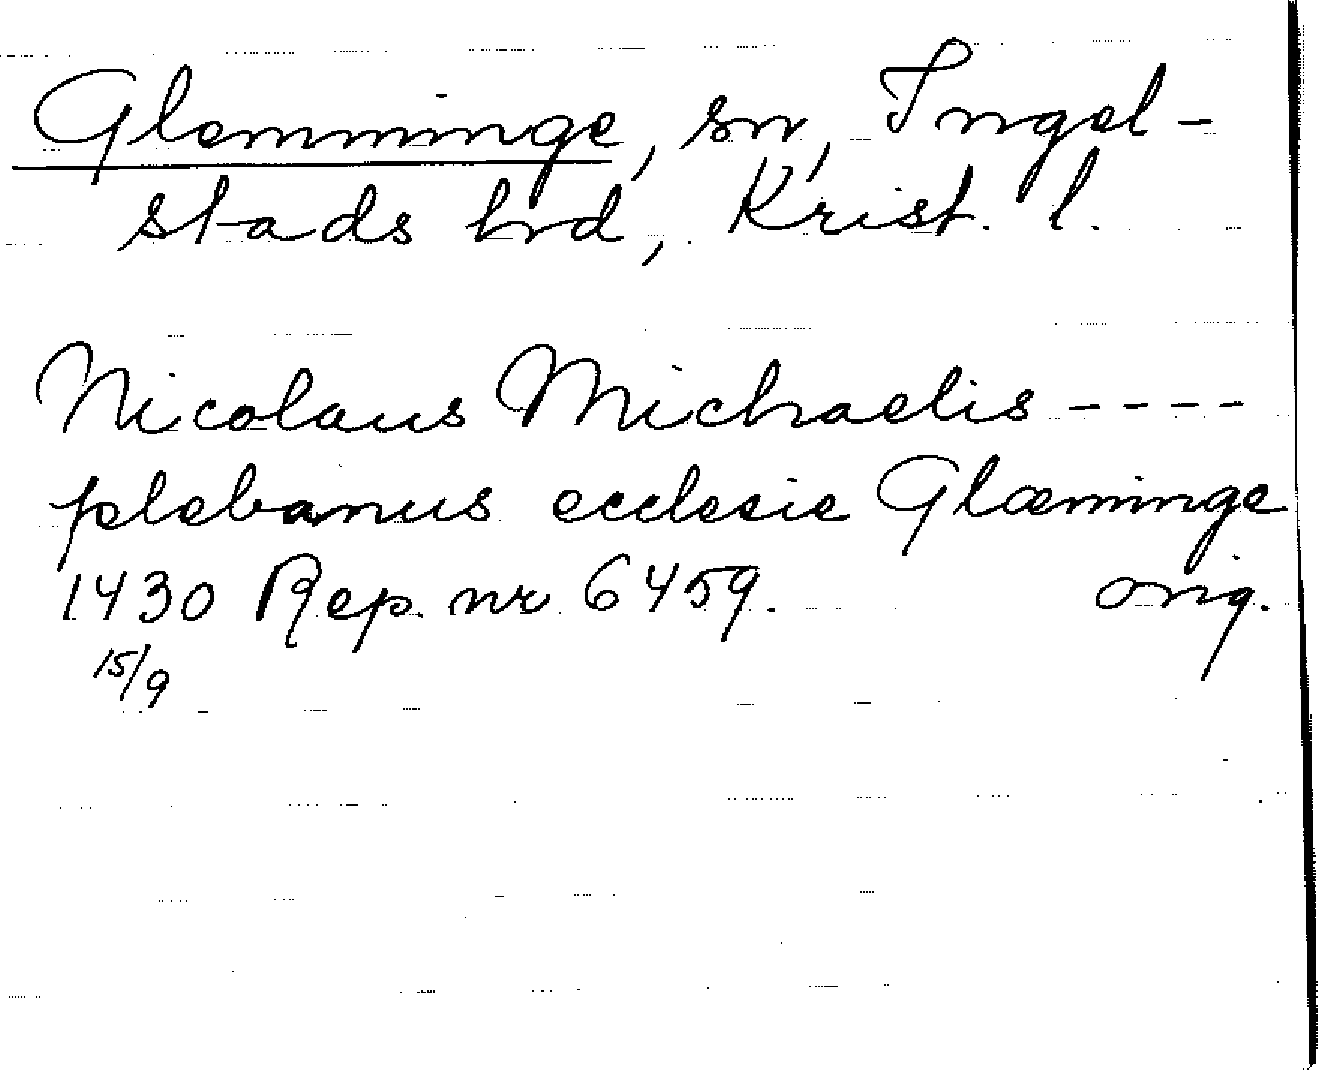 Glemminge, sn, Ingel-
stads hrd, Krist. l.
Nicolaus Michaelis ----
plebanus ecclesie Glæminge
1430 Rep. nr 6459. orig.
15/9